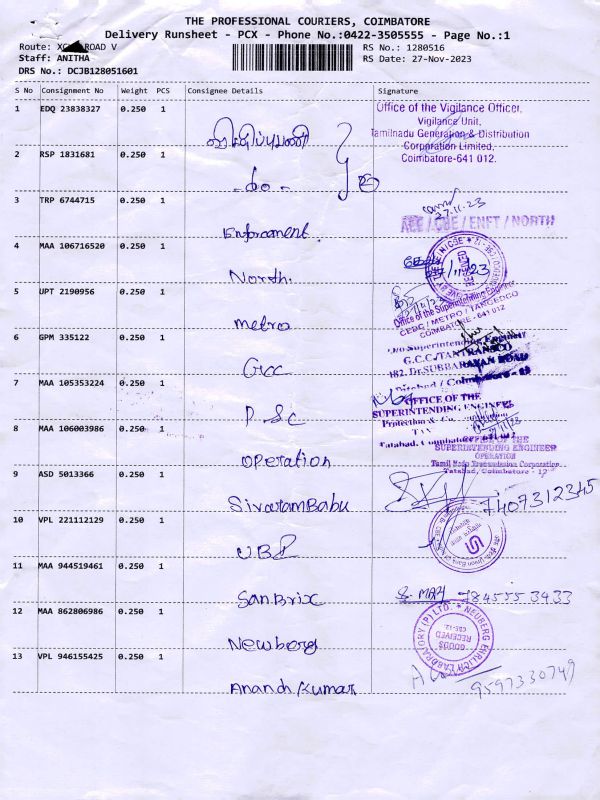 THE PROFESSIONAL COURIERS, COIMBATORE
Delivery Runsheet - PCX - Phone No.:0422-3505555 - Page No.:1
Route: ROAD V
RS No.: 1280516
Staff: ANITHA
RS Date: 27-Nov-2023
DRS No.: DCJB128051601
S No Consignment No Weight PCS Consignee Details Signature
1 EDQ 23838327 0.250 1
Office of the Vigilance Officer,
Vigilance Unit,
Tamilnadu Generation & Distribution
Corporation Limited,
Coimbatore-641 012.
2 RSP 1831681 0.250 1 - do -
3 TRP 6744715 0.250 1 Enforcement.
27.11.23
AEE / CBE / ENFT / NORTH
4 MAA 106716520 0.250 1 North.
5 UPT 2190956 0.250 1 metro
Office of the Superintending Engineer
CEDC / METRO / TANGEDCO
COIMBATORE - 641 012
6 GPM 335122 0.250 1 GCC
Superintending Engineer
G.C.C, TANTRANSCO
182, Dr.SUBBARAYAN ROAD
Tatabad / Coimbatore - 12
7 MAA 105353224 0.250 1 P Sc
OFFICE OF THE
SUPERINTENDING ENGINEER
Protection &
8 MAA 106003986 0.250 1 Operation
OFFICE OF THE
SUPERINTENDING ENGINEER
OPERATION
Tamil Nadu Transmission Corporation
Tatabad, Coimbatore - 12
9 ASD 5013366 0.250 1 SivaramBabu 7407312345
10 VPL 221112129 0.250 1 UBI
11 MAA 944519461 0.250 1 SanBrix
12 MAA 862806986 0.250 1 Newberg
NEUBERG EHRLICH LABORATORY (P) LTD.
GOODS
RECEIVED
CBE-12.
13 VPL 946155425 0.250 1 Anand Kumar 9597330749